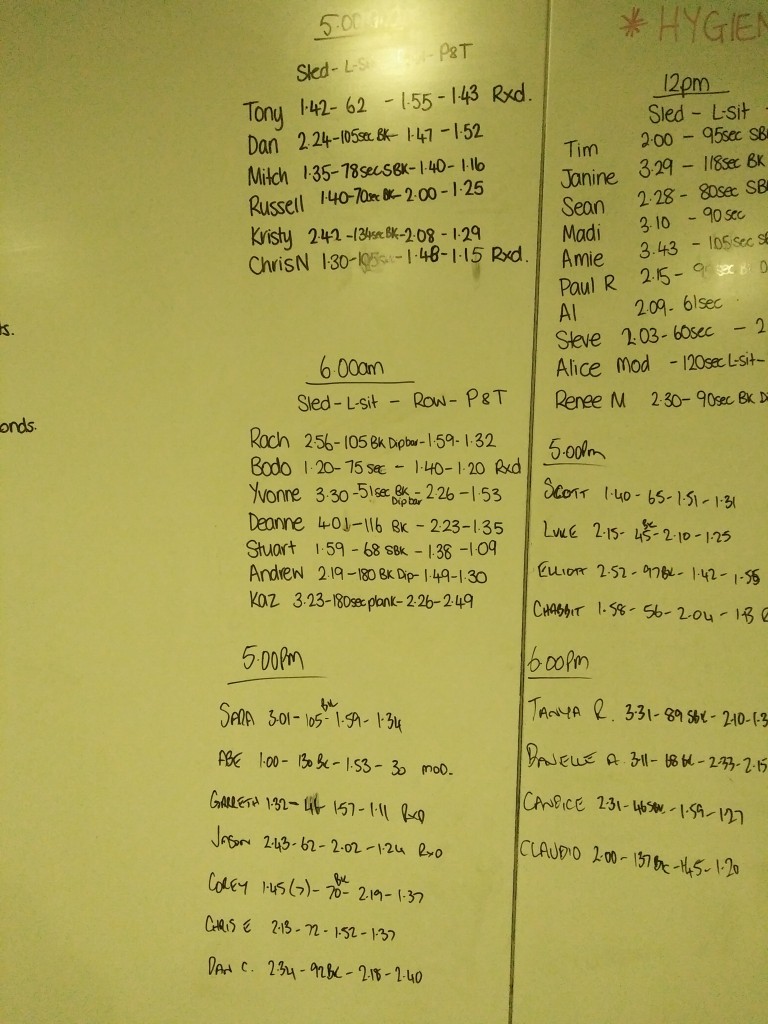 5:00
Sled - L-S - P&T
Tony 1.42 - 62 - 1.55 - 1.43 Rxd.
Dan 2.24 - 105sec BK - 1.47 - 1.52
Mitch 1.35 - 78secSBK - 1.40 - 1.16
Russell 1.40 - 70sec BK - 2.00 - 1.25
Kristy 2.42 - 134sec BK - 2.08 - 1.29
ChrisN 1.30 - - 1.48 - 1.15 Rxd.
6.00am
Sled - L-sit - Row - P&T
Rach 2.56 - 105 BK Dipbar - 1.59 - 1.32
Bodo 1.20 - 75 sec - 1.40 - 1.20 Rxd
Yvonne 3.30 - 51sec BK Dipbar - 2.26 - 1.53
Deanne 4.01 - 116 BK - 2.23 - 1.35
Stuart 1.59 - 68 SBK - 1.38 - 1.09
Andrew 2.19 - 180 BK Dip - 1.49 - 1.30
Kaz 3.23 - 180sec plank - 2.26 - 2.49
5.00pm
SARA 3.01 - 105 BK - 1.59 - 1.34
ABE 1.00 - 130 BK - 1.53 - 30 MOD.
GARRETH 1.32 - 46 1.57 - 1.11 RxD
JASON 2.43 - 62 - 2.02 - 1.24 RxD
COREY 1.45(7) - 70 BK - 2.19 - 1.37
CHRIS E 2.13 - 72 - 1.52 - 1.37
DAN C. 2.34 - 92BK - 2.18 - 2.40
ts.
onds.
* HYGIEN
12pm
Sled - L-sit -
Tim 2.00 - 95sec SB
Janine 3.29 - 118sec BK
Sean 2.28 - 80sec SB
Madi 3.10 - 90sec
Amie 3.43 - 105sec S
Paul R 2.15 -
Al 2.09 - 61sec
Steve 2.03 - 60sec - 2
Alice Mod - 120sec L-sit -
Renee M 2.30 - 90sec BK Di
5.00pm
SCOTT 1.40 - 65 - 1.51 - 1.31
LUKE 2.15 - 45 BK - 2.10 - 1.25
ELLIOTT 2.52 - 97BK - 1.42 - 1.55
CHABBIT 1.58 - 56 - 2.04 -
6.00pm
TANYA R. 3.31 - 89 SBK - 2.10 - 1.3
DANELLE A. 3.11 - 68 BK - 2.33 - 2.15
CANDICE 2.31 - 46SBK - 1.59 - 1.27
CLAUDIO 2.00 - 137BK - 1.45 - 1.20